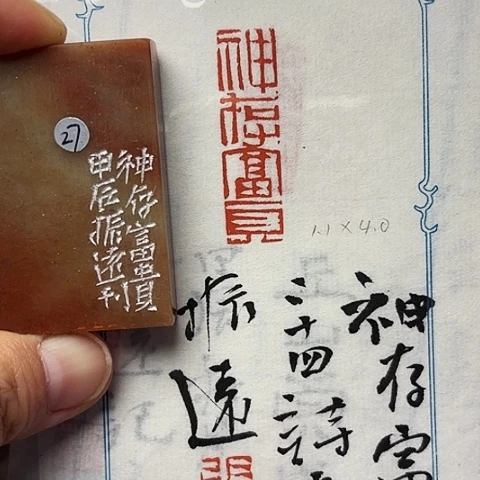 27
神存富貴
甲辰振遠刊
神存富貴
1.1×4.0
神存富
二十四詩
振遠